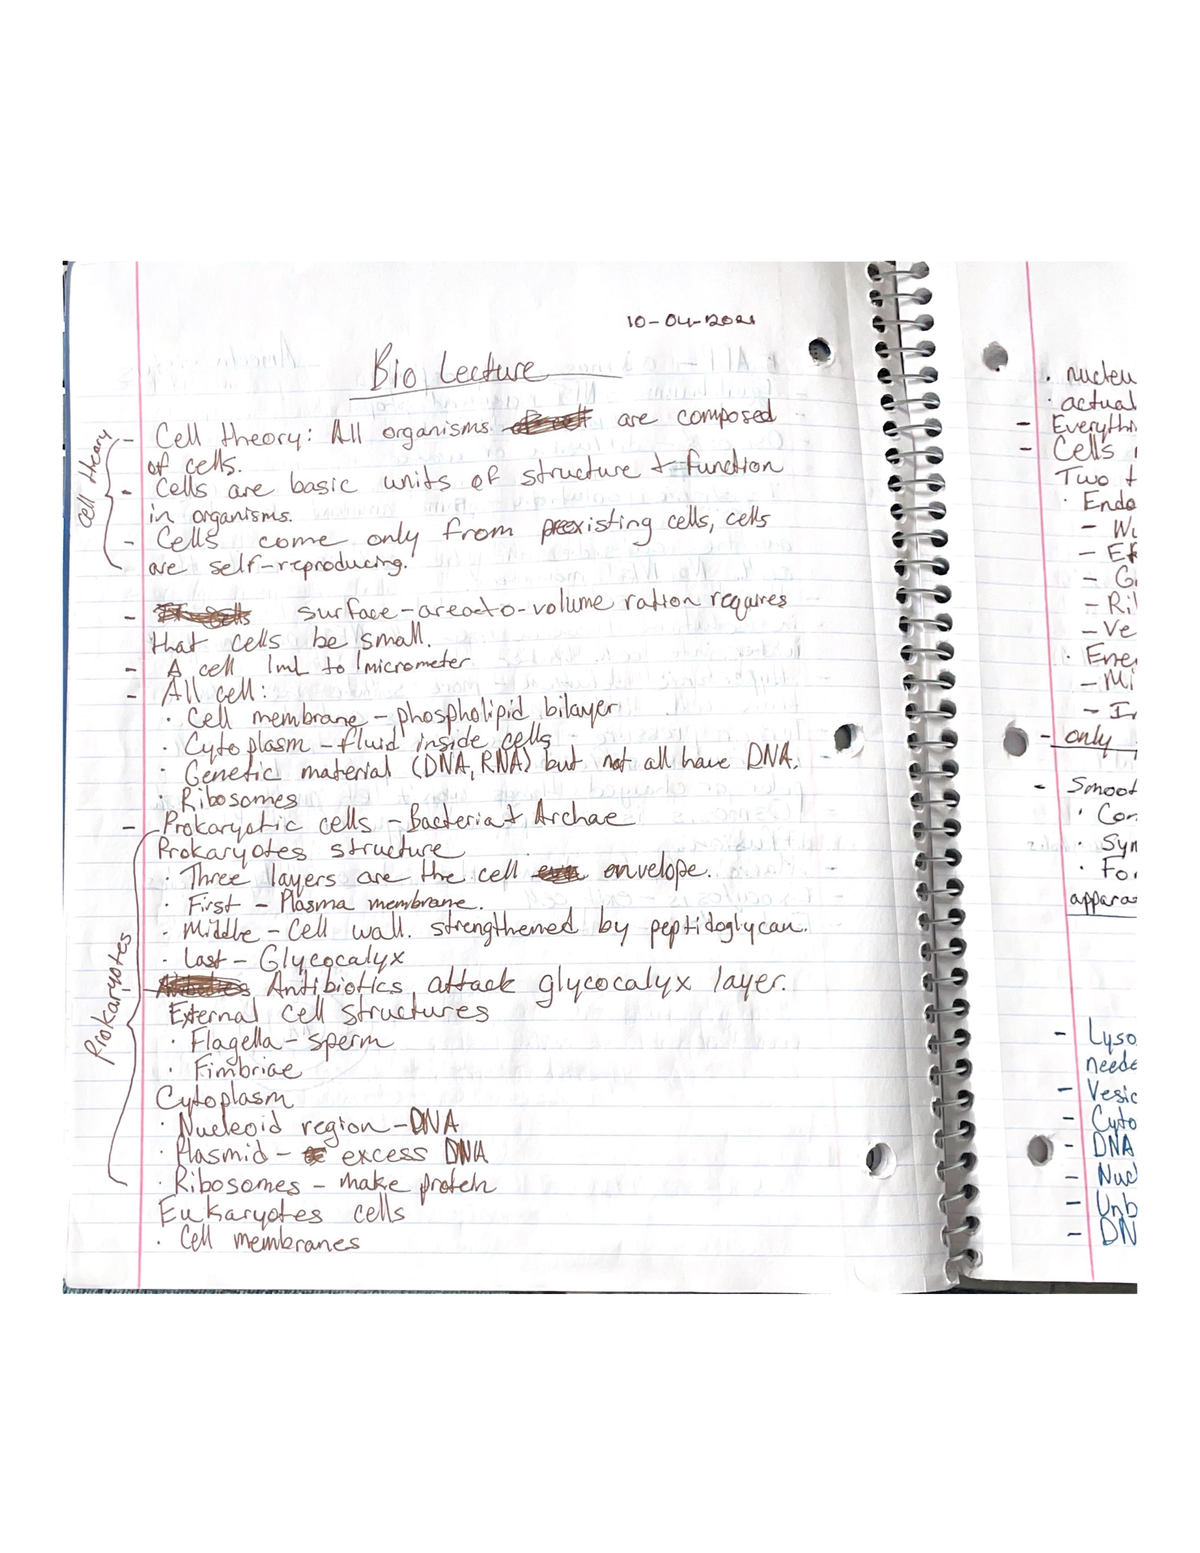 10-04-2021
Bio Lecture
Cell theory
- Cell theory: All organisms are composed
of cells.
- Cells are basic units of structure + function
in organisms.
- Cells come only from preexisting cells, cells
are self-reproducing.
- surface-area-to-volume ration requires
that cells be small.
- A cell 1mL to 1micrometer
- All cell:
· Cell membrane - phospholipid bilayer
· Cytoplasm - fluid inside cells
· Genetic material (DNA, RNA) but not all have DNA.
· Ribosomes
- Prokaryotic cells - Bacteria + Archae
Prokaryotes
Prokaryotes structure
· Three layers are the cell envelope.
· First - Plasma membrane.
· Middle - Cell wall. strengthened by peptidoglycan.
· Last - Glycocalyx
- Antibiotics attack glycocalyx layer.
External cell structures
· Flagella - sperm
· Fimbriae
Cytoplasm
· Nucleoid region - DNA
· Plasmid - excess DNA
· Ribosomes - make protein
Eukaryotes cells
· Cell membranes
· nucleu
· actual
- Everythi
- Cells
Two t
· Endo
- Wu
- Ef
- G
- Ril
- Ve
· Ener
- Mi
- In
- only
- Smoot
· Con
· Syn
· For
appara
- Lyso
neede
- Vesic
- Cyto
- DNA
- Nucl
- Unb
- DN